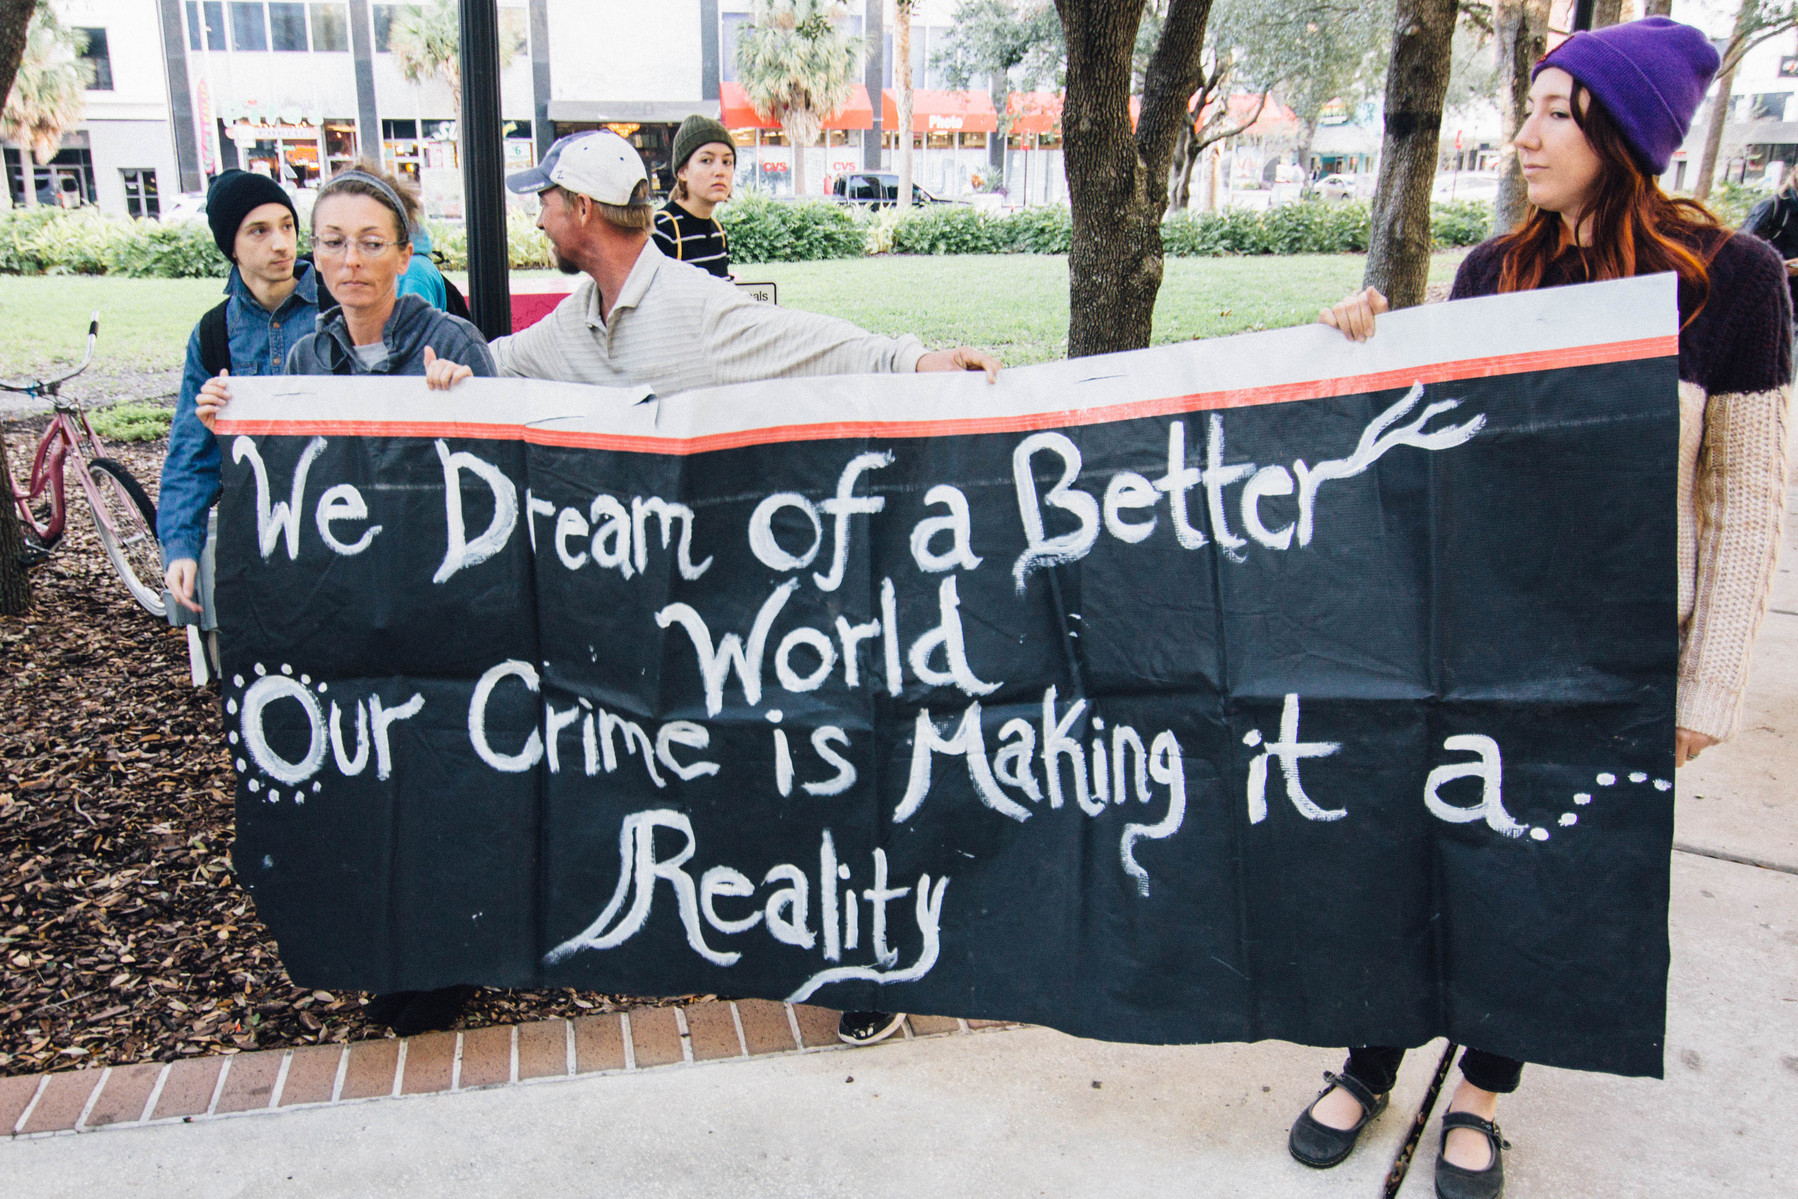 Photo
CVS
CVS
als
We Dream of a Better
World
Our Crime is Making it a
Reality